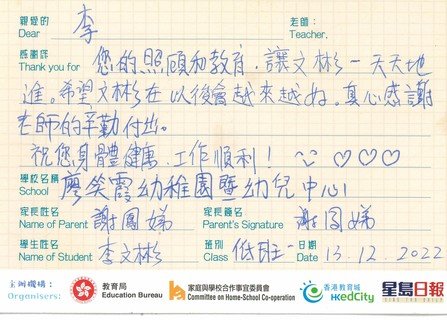 親愛的 李 老師：
Dear Teacher,
感謝您
Thank you for 您的照顧和教育，讓文彬一天天地
進。希望文彬在以後會越來越好。真心感謝
老師的辛勤付出。
祝您身體健康 工作順利！ ♡♡♡
學校名稱
School 廖笑霞幼稚園暨幼兒中心
家長姓名 謝鳳娣 家長簽名 謝鳳娣
Name of Parent Parent's Signature
學生姓名 李文彬 班別 低班 日期
Name of Student Class Date 13.12.2022
主辦機構：
Organisers:
教育局
Education Bureau
家庭與學校合作事宜委員會
Committee on Home-School Co-operation
香港教育城
HKedCity
星島日報
SING TAO DAILY